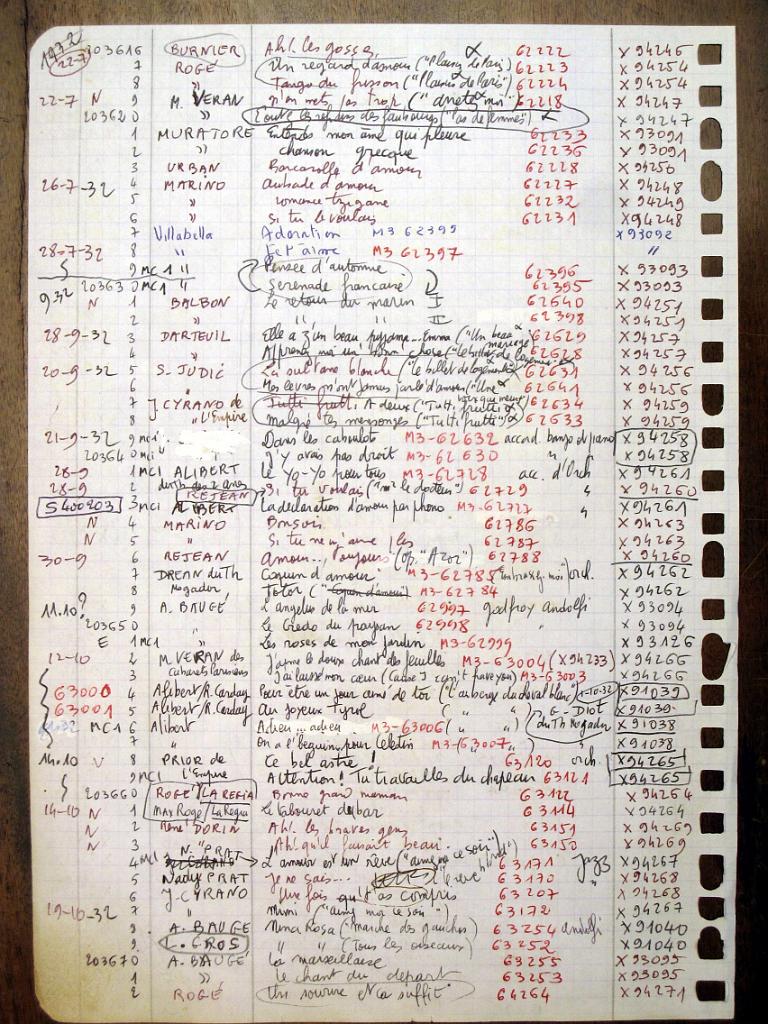 1932 22-7 203616 BURNIER Ah! les gosses 62222 X 94246
7 ROGÉ Un regard d'amour ("Plaisirs de Paris") 62223 X 94254
8 " Tango du frisson ("Plaisirs de Paris") 62224 X 94254
22-7 N 9 M. VERAN 62218 X 94247
203620 " Toute les refrains des faubourgs ("as de femmes") X 94247
1 MURATORE Entends mon âme qui pleure 62233 X 93091
2 " chanson grecque 62236 X 93091
3 URBAN Barcarolle d'amour 62228 X 94250
26-7-32 4 MARINO Aubade d'amour 62227 X 94248
5 " romance tzigane 62232 X 94249
6 " Si tu le voulais 62231 X 94248
7 Villabella Adoration M3 62399 X 93092
28-7-32 8 " Je t'aime M3 62397 "
9 MC1 " Pensée d'automne 62396 X 93093
9.32 203630 MC1 " Serenade française 62395 X 93093
N 1 BALBON Le retour du marin I 62640 X 94251
2 " " " II 62398 X 94251
28-9-32 3 DARTEUIL Elle a z'un beau pyjama... Emma ("Un beau mariage") 62629 X 94257
4 " 62628 X 94257
20-9-32 5 S. JUDIC La sultane blanche ("le billet de logement") 62631 X 94256
6 Mes levres n'ont jamais parlé d'amour 62641 X 94256
7 J CYRANO de l'Empire Tutti frutti A deux ("Tutti frutti") 62634 X 94259
8 Malgré tes mensonges ("Tutti frutti") 62633 X 94259
21-9-32 9 MC1 Dans les caboulots M3-62632 accord. banjo et piano X 94258
203640 MC1 " J'y avais pas droit M3-62630 " X 94258
28-9 1 MC1 ALIBERT Le Yo-Yo pour tous M3-62728 acc. d'Orch X 94261
28-9 2 du th des 2 anes REJEAN Si tu voulais 62729 " X 94260
S400203 3 MC1 ALIBERT La déclaration d'amour par phono M3-62727 X 94261
N 4 MARINO Bonsoir 62786 X 94263
N 5 " Si tu ne m'aime les 62787 X 94263
30-9 6 REJEAN Amour... toujours (op. "Azor") 62788 X 94260
7 DREAN du Th Coquin d'amour M3-62785 orch. X 94262
8 Mogador Totor ("Coquin d'amour") M3-62784 X 94262
11.10? 9 A. BAUGÉ L'angelus de la mer 62997 godfroy andolfi X 93094
203650 " Le Credo du paysan 62998 " X 93094
E 1 MC1 " Les roses de mon jardin M3-62999 X 93126
12-10 2 M. VERAN des J'aime le doux chant des feuilles M3-63004 (X 94233) X 94266
3 Cabarets Parisiens J'ai laissé mon cœur M3-63003 X 94266
63000 4 Alibert/R. Carday Pour être un jour aimé de toi ("L'auberge du cheval blanc") 1-10-32 X 91039
63001 5 Alibert/R. Carday Au joyeux Tyrol ( " " ) G. Diot X 91039
MC1 6 Alibert Adieu... adieu M3-63006 ( " " ) du Th Mogador X 91038
7 " On a l'beguin pour Celestin M3-(63007) X 91038
14.10 v 8 PRIOR de Ce bel astre! 63120 orch. X 94265
9 MC1 l'Empire Attention! Tu travailles du chapeau 63121 " X 94265
203660 ROGÉ/LA REGIA Bonne grand maman 63122 X 94264
14-10 N 1 Max Rogé/La Regia Le tabouret de bar 63114 X 94264
N 2 René DORIN Ah! les braves gens 63151 X 94269
N 3 " Ah! qu'il faisait beau 63150 X 94269
4 MC1 N. PRAT L'amour est un rêve ("aime moi ce soir") 63171 Jazz X 94267
5 Nady PRAT Je ne sais... 63170 " X 94268
6 J. CYRANO Une fois qu't'as compris 63207 X 94268
19-10-32 7 " Mimi ("aime moi ce soir") 63172 X 94267
8 A. BAUGÉ Nina Rosa (marche des gauchos) 63254 andolfi X 91040
9 L. GROS " " (Tous les oiseaux) 63252 X 91040
203670 A. BAUGÉ La marseillaise 63255 X 93095
1 " Le chant du depart 63253 X 93095
2 ROGÉ Un sourire et ça suffit 64264 X 94271